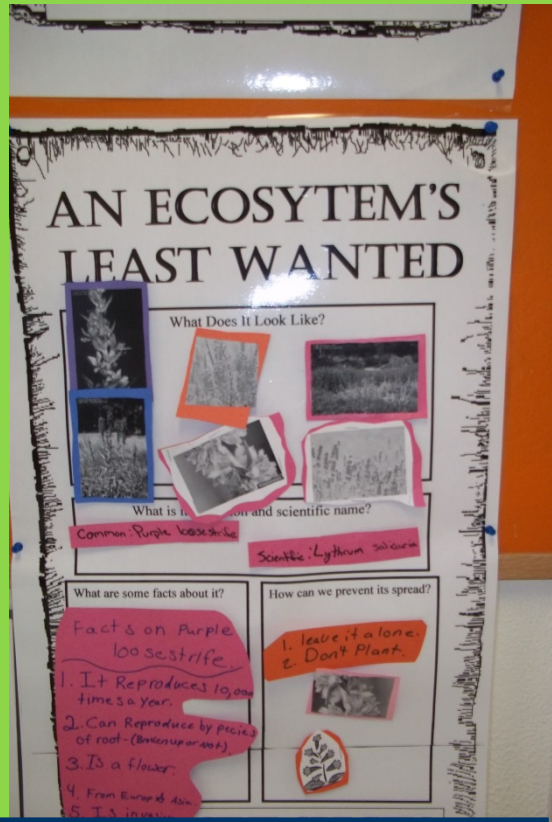 AN ECOSYTEM'S
LEAST WANTED
What Does It Look Like?
What is and scientific name?
Common: Purple loosestrife
Scientific: Lythrum salicaria
What are some facts about it?
Facts on Purple
loosestrife.
1. It Reproduces 10,000
times a year.
2. Can Reproduce by pecies
of root - (Broken up or Not)
3. Is a flower.
4. From Europe & Asia.
5. Is
How can we prevent its spread?
1. leave it alone.
2. Don't Plant.